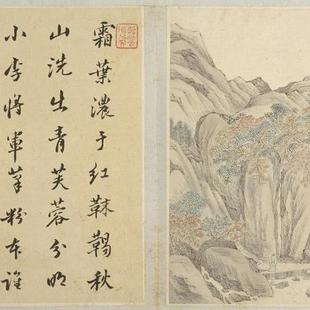 霜葉濃于紅靺鞨秋
山洗出青芙蓉分明
小李將軍筆粉本誰